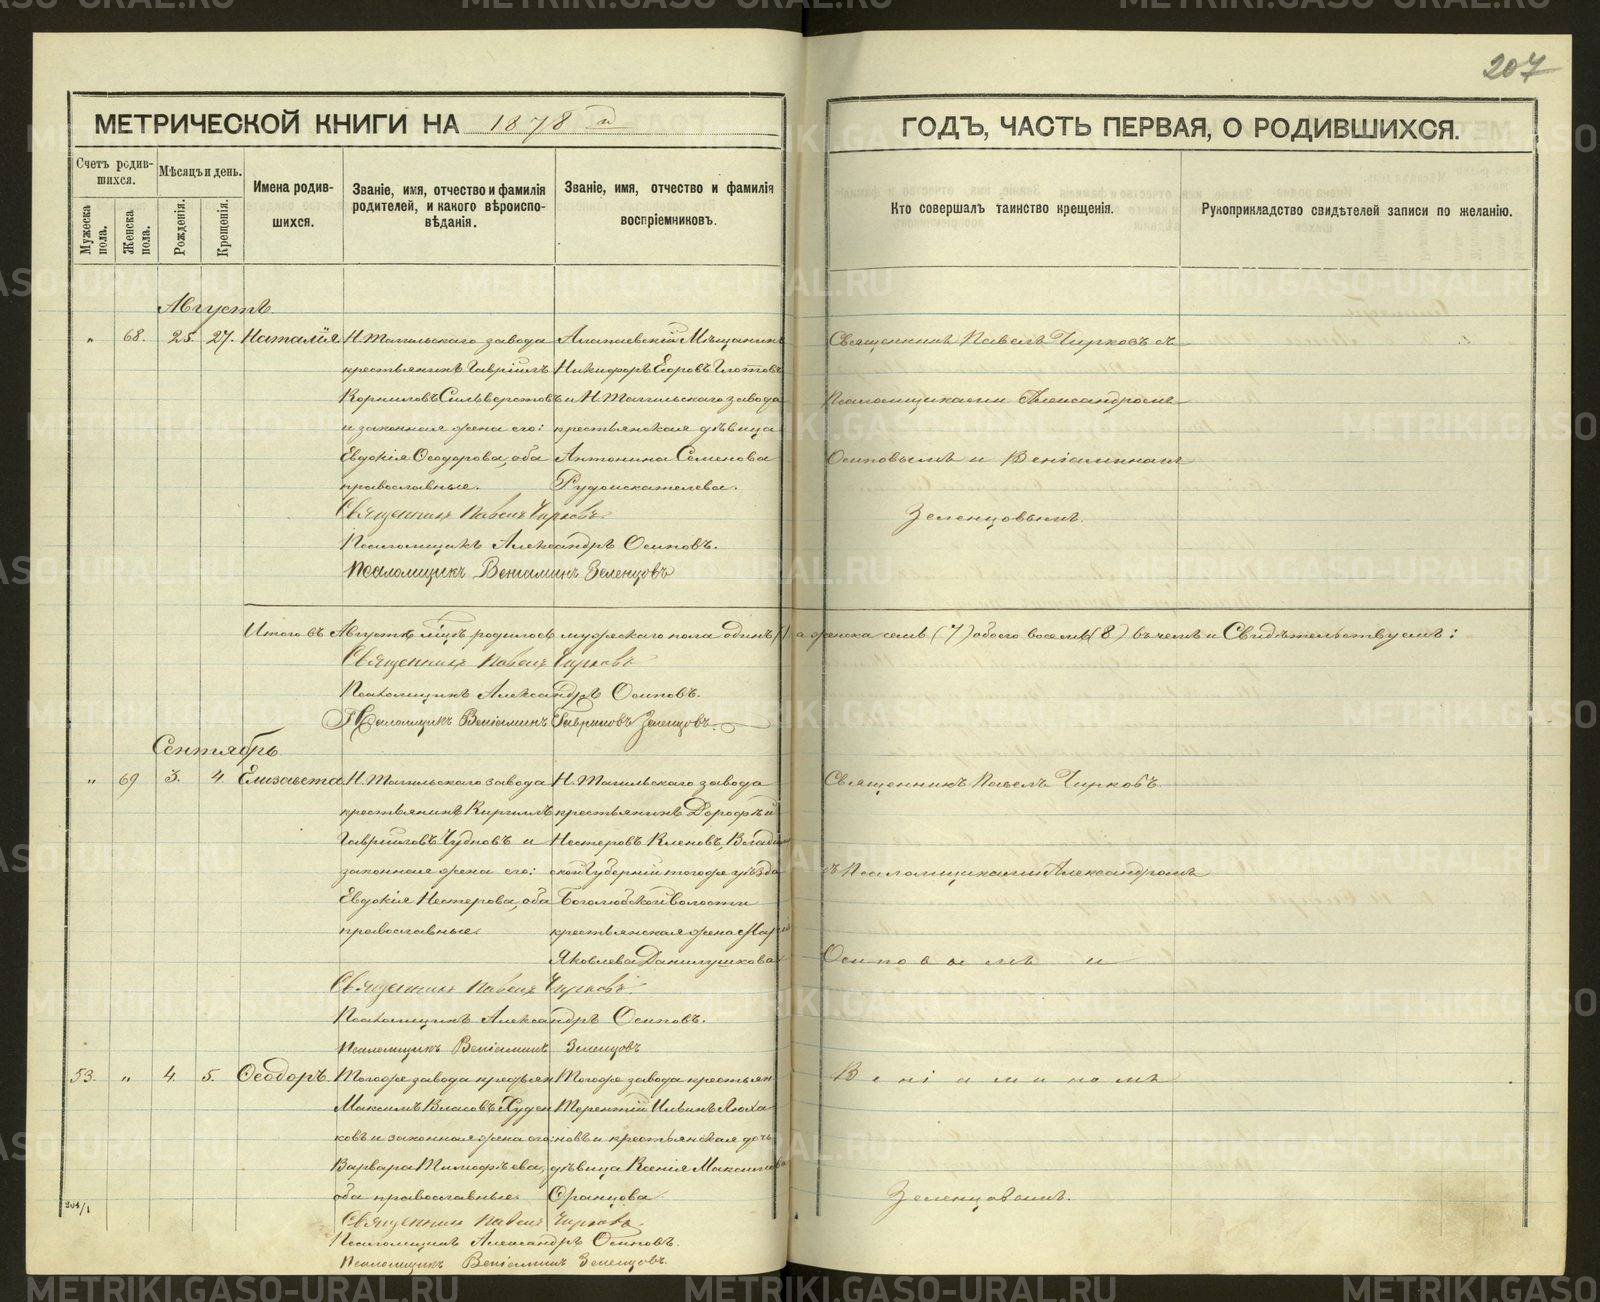 207
МЕТРИЧЕСКОЙ КНИГИ НА 1878 й
ГОДЪ, ЧАСТЬ ПЕРВАЯ, О РОДИВШИХСЯ.
Счетъ родив-
шихся.
Мужеска пола.
Женска пола.
Мѣсяцъ и день.
Рожденія.
Крещенія.
Имена родив-
шихся.
Званіе, имя, отчество и фамилія
родителей, и какого вѣроиспо-
вѣданія.
Званіе, имя, отчество и фамилія
воспріемниковъ.
Кто совершалъ таинство крещенія.
Рукоприкладство свидѣтелей записи по желанію.
Августъ
„ 68. 25. 27. Наталія
Н. Тагильскаго завода
крестьянинъ Гавріилъ
Корниловъ Сильверстовъ
и законная жена его:
Евдокія Ѳеодорова, оба
православные.
Алапаевскій Мѣщанинъ
Никифоръ Егоровъ Глотовъ
и Н. Тагильскаго завода
крестьянская дѣвица
Антонина Семенова
Рудоискателева.
Священникъ Павелъ Чирковъ съ
Псаломщиками Александромъ
Осиповымъ и Веніаминомъ
Зеленцовымъ.
Священникъ Павелъ Чирковъ
Псаломщикъ Александръ Осиповъ.
Псаломщикъ Веніаминъ Зеленцовъ
Итого въ Августѣ мцѣ родилось мужескаго пола одинъ (1) а женска семь (7) обоего восемь (8) въ чемъ и Свидѣтельствуемъ:
Священникъ Павелъ Чирковъ
Псаломщикъ Александръ Осиповъ.
Псаломщикъ Веніаминъ Гавриловъ Зеленцовъ.
Сентябрь
„ 69 3. 4. Елизавета
Н. Тагильскаго завода
крестьянинъ Кириллъ
Гавриловъ Чудновъ и
законная жена его:
Евдокія Нестерова, оба
православные
Н. Тагильскаго завода
крестьянинъ Дорофѣй
Нестеровъ Кленовъ, Влади
ской Губерніи тогоже уѣзда
Боголюбской волости
крестьянская жена Марія
Яковлева Данилушкова
Священникъ Павелъ Чирковъ
съ Псаломщиками Александромъ
Осиповымъ и
Священникъ Павелъ Чирковъ
Псаломщикъ Александръ Осиповъ.
Псаломщикъ Веніаминъ Зеленцовъ
53. „ 4. 5. Ѳеодоръ.
Тогоже завода крестьян
Максимъ Власовъ Худен
ковъ и законная жена его:
Варвара Тимофѣева,
оба православные
Тогоже завода крестьян
Терентій Ильинъ Люха
новъ и крестьянская дочь
дѣвица Ксенія Максимова
Ѳранцова
Веніаминомъ
Зеленцовымъ.
Священникъ Павелъ Чирковъ
Псаломщикъ Александръ Осиповъ.
Псаломщикъ Веніаминъ Зеленцовъ.
204/1
METRIKI.GASO-URAL.RU